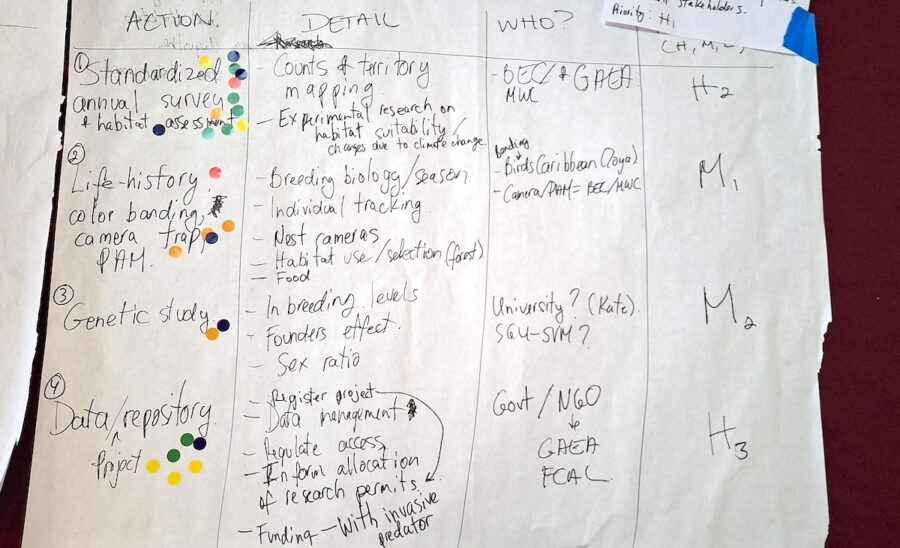 ACTION.
DETAIL
WHO?
stakeholders.
Priority: H1
(H, M, L)
① Standardized
annual survey
+ habitat assessment
- Counts & territory
mapping
- Experimental research on
habitat suitability/
changes due to climate change.
- BEC/ & GAEA
MWC
H2
② Life-history
color banding,
camera trap,
PAM.
- Breeding biology/season.
- Individual tracking.
- Nest cameras
- Habitat use/selection (forest)
- Food
Banding
- Birds Caribbean (Zoya)
- Camera/PAM = BEC/MWC
M1
③ Genetic study.
- In breeding levels
- Founders effect.
- Sex ratio
University? (Kate).
SGU-SVM?
M2
④ Data/repository
Project
- Register project
- Data management
- Regulate access
- Inform allocation
of research permits.
- Funding - With invasive
predator
Govt/NGO
GAEA
FCAL
H3